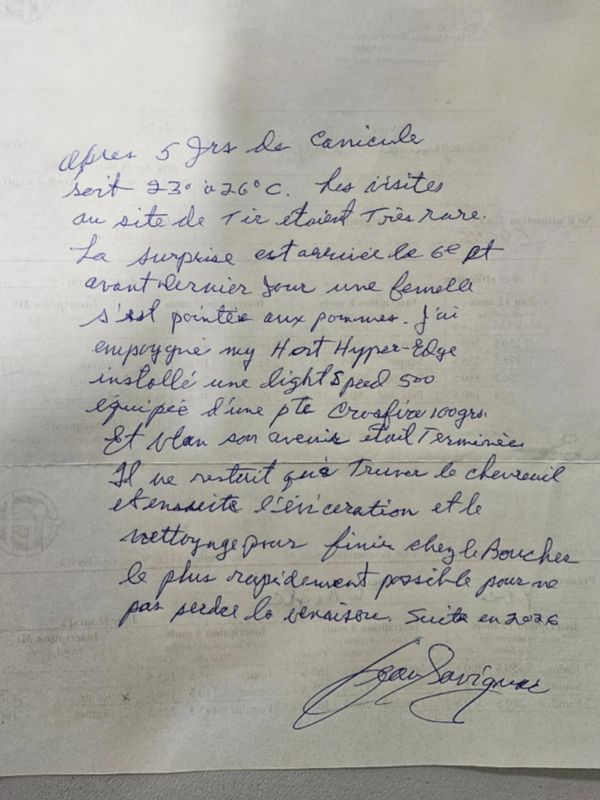 Apres 5 Jrs de Canicule
soit 23° à 26° C. Les visites
au site de Tir étaient Très rare.
La surprise est arrivée le 6e et
avant dernier jour une femelle
s'est pointée aux pommes. J'ai
empoygné my Hoyt Hyper-Edge
installé une light Speed 500
équipée d'une pte Crosfire 100grs.
Et vlan son avenir était Terminée
Il ne restait qu'à Truver le chevreuil
et ensuite l'éviceration et le
nettoyage pour finir chez le Boucher
le plus rapidement possible pour ne
pas perdre la venaison. Suite en 2026
Jean Savignac